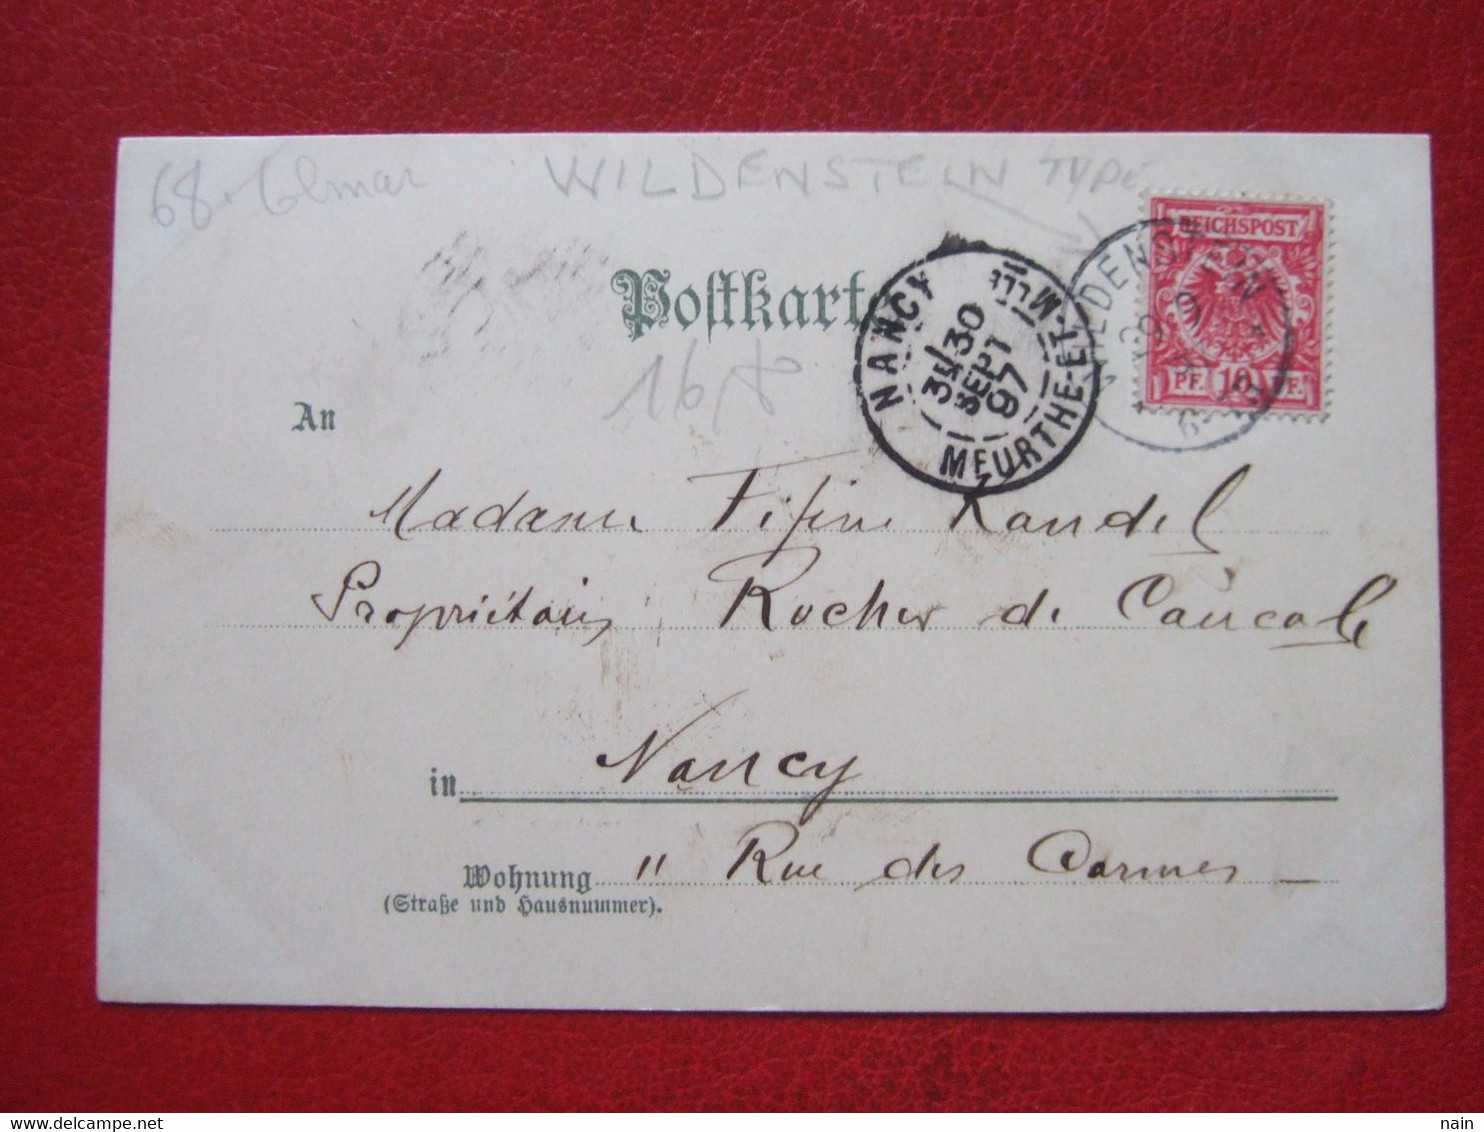 68. Colmar
WILDENSTEIN TYPE
REICHSPOST
PF. 10 PF.
WILDENSTEIN
Postkarte
NANCY
MEURTHE-ET-Mlle
3E/30
SEPT
97
An
Madame Fifine Kandel
Propriétaire Rocher de Cancale
in Nancy
Wohnung 11 Rue des Carmes
(Straße und Hausnummer).
delcampe.net
nain